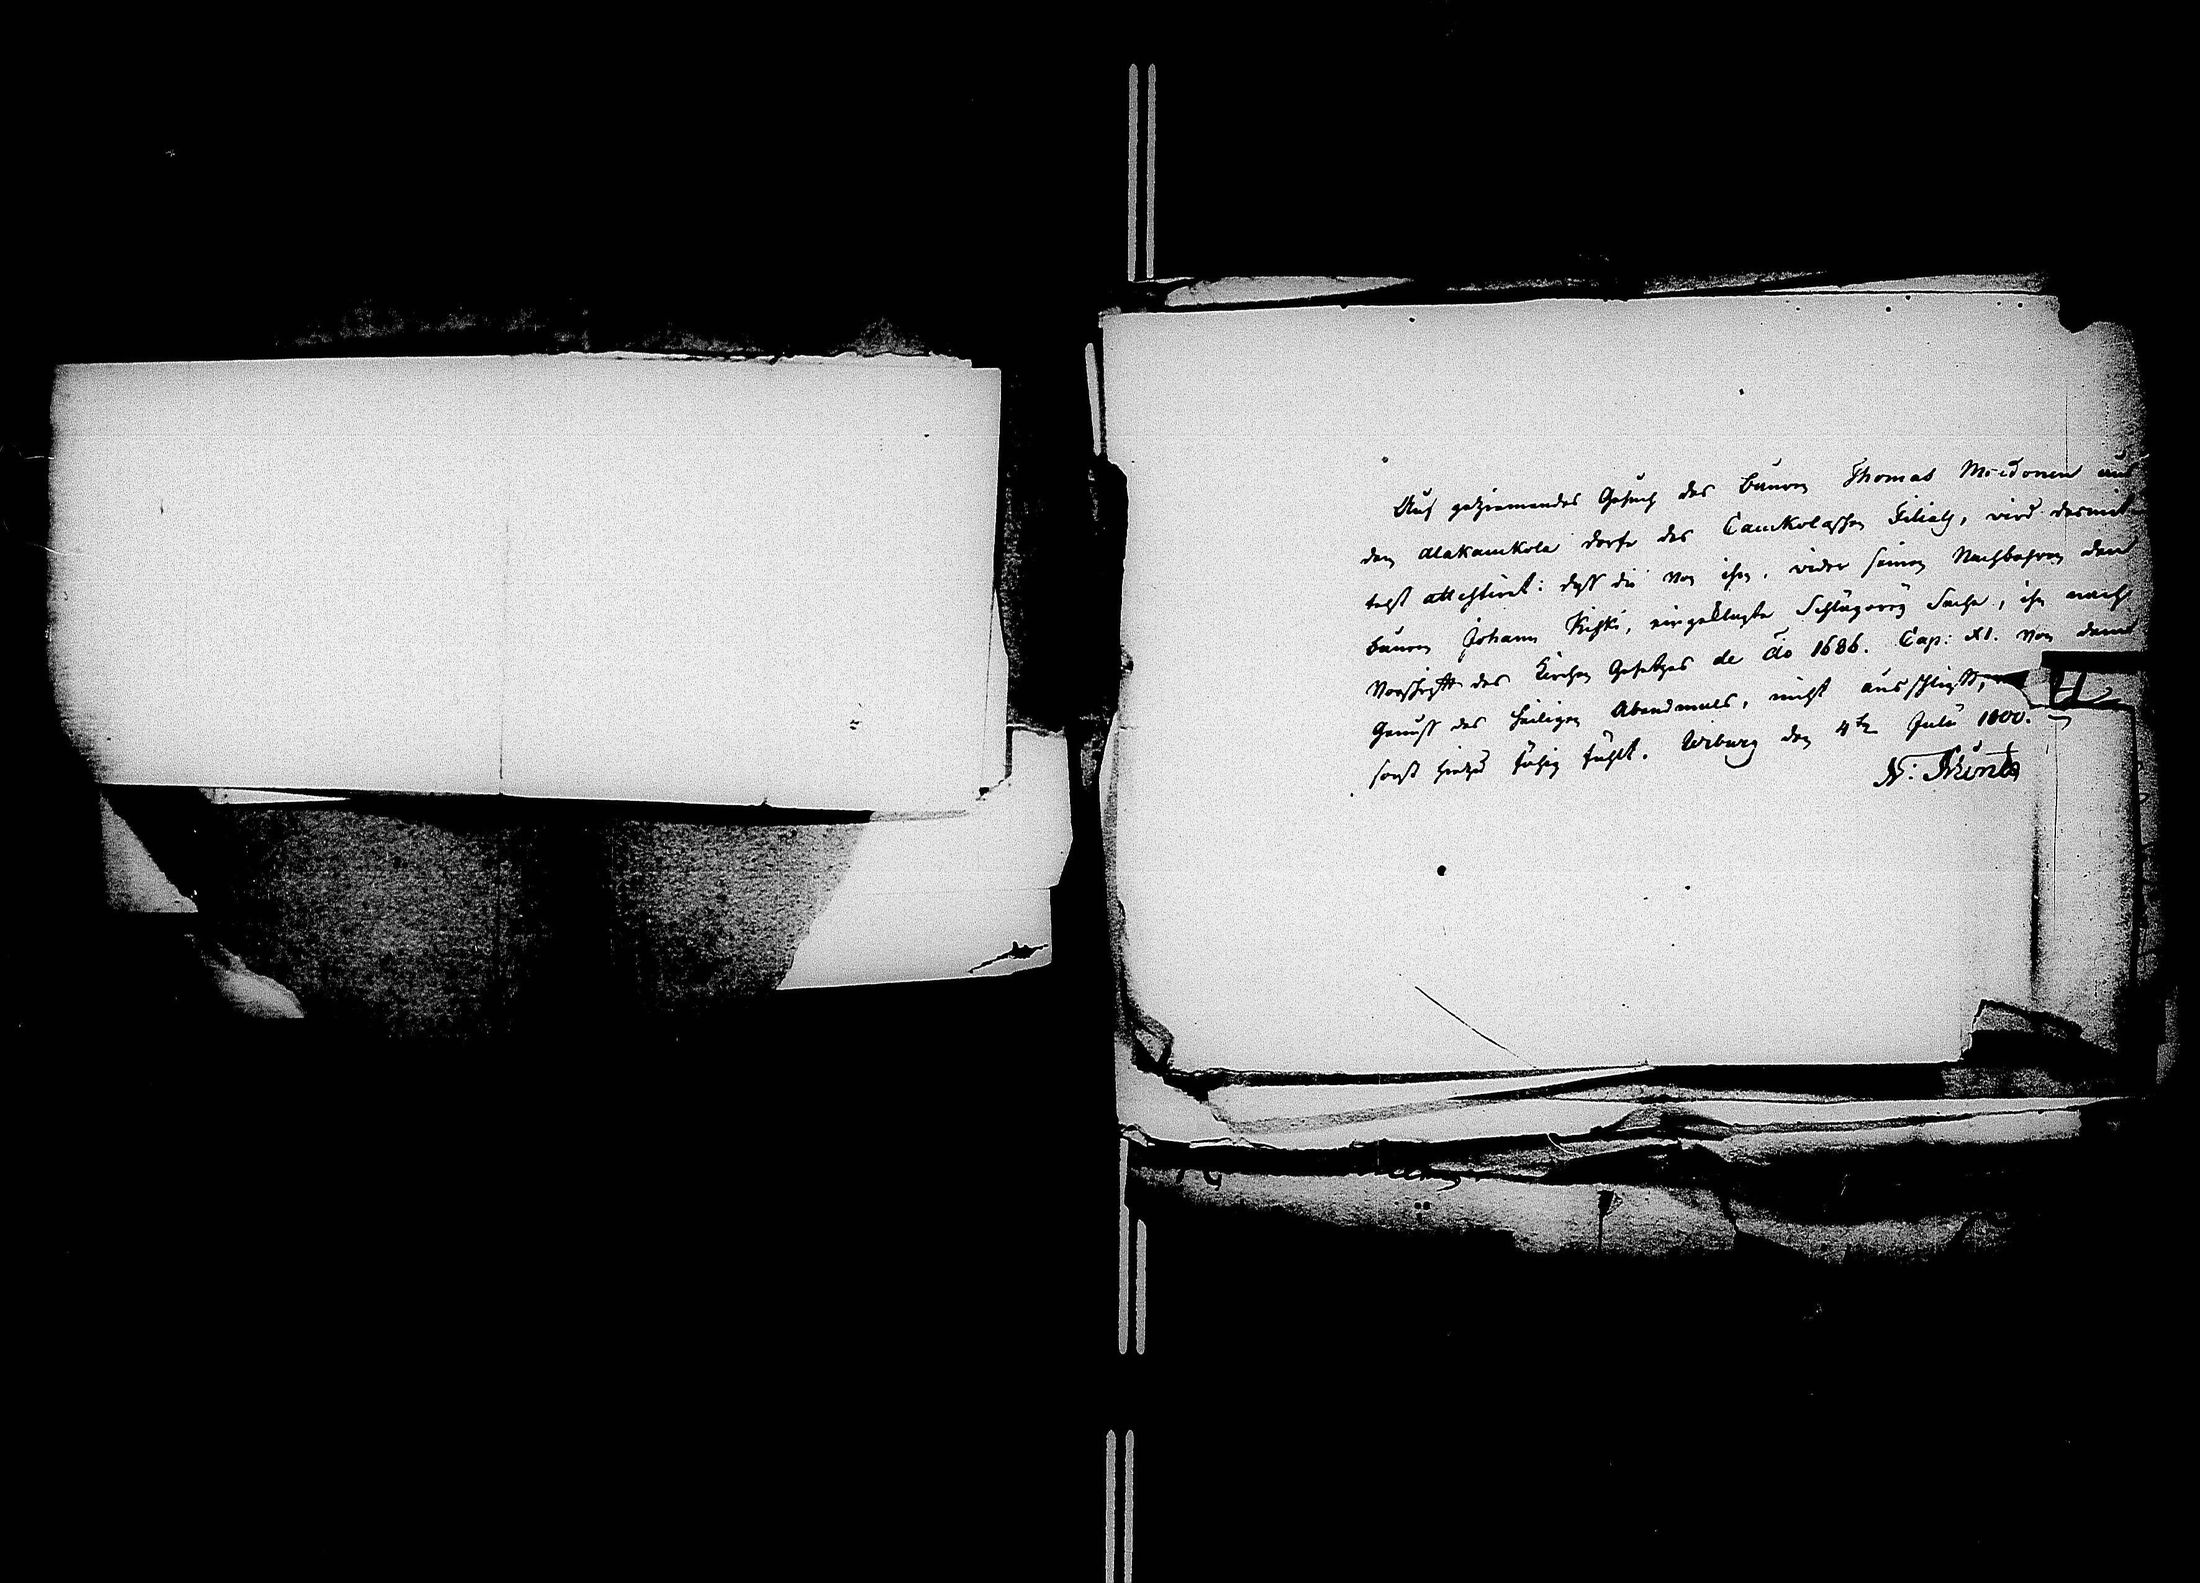 Auf geziemendes Gesuch des Bauren Thomas Moidonen aus
dem Alakaukola dorfe des Caukolaschen Filials, wird desmit-
telst attestiret: dass die von ihm, wider seinen Nachbahren den
Bauren Johann Kiski, eingeklagte Schlägerey Sache, ihn nach
Vorschrifft des Kirchen Gesetzes de Ao 1686. Cap: XI. von dem
Genuss des heiligen Abendmals, nicht ausschliesst,
sonst hiezu fähig fühlt. Wiburg den 4ten Julii 1800.